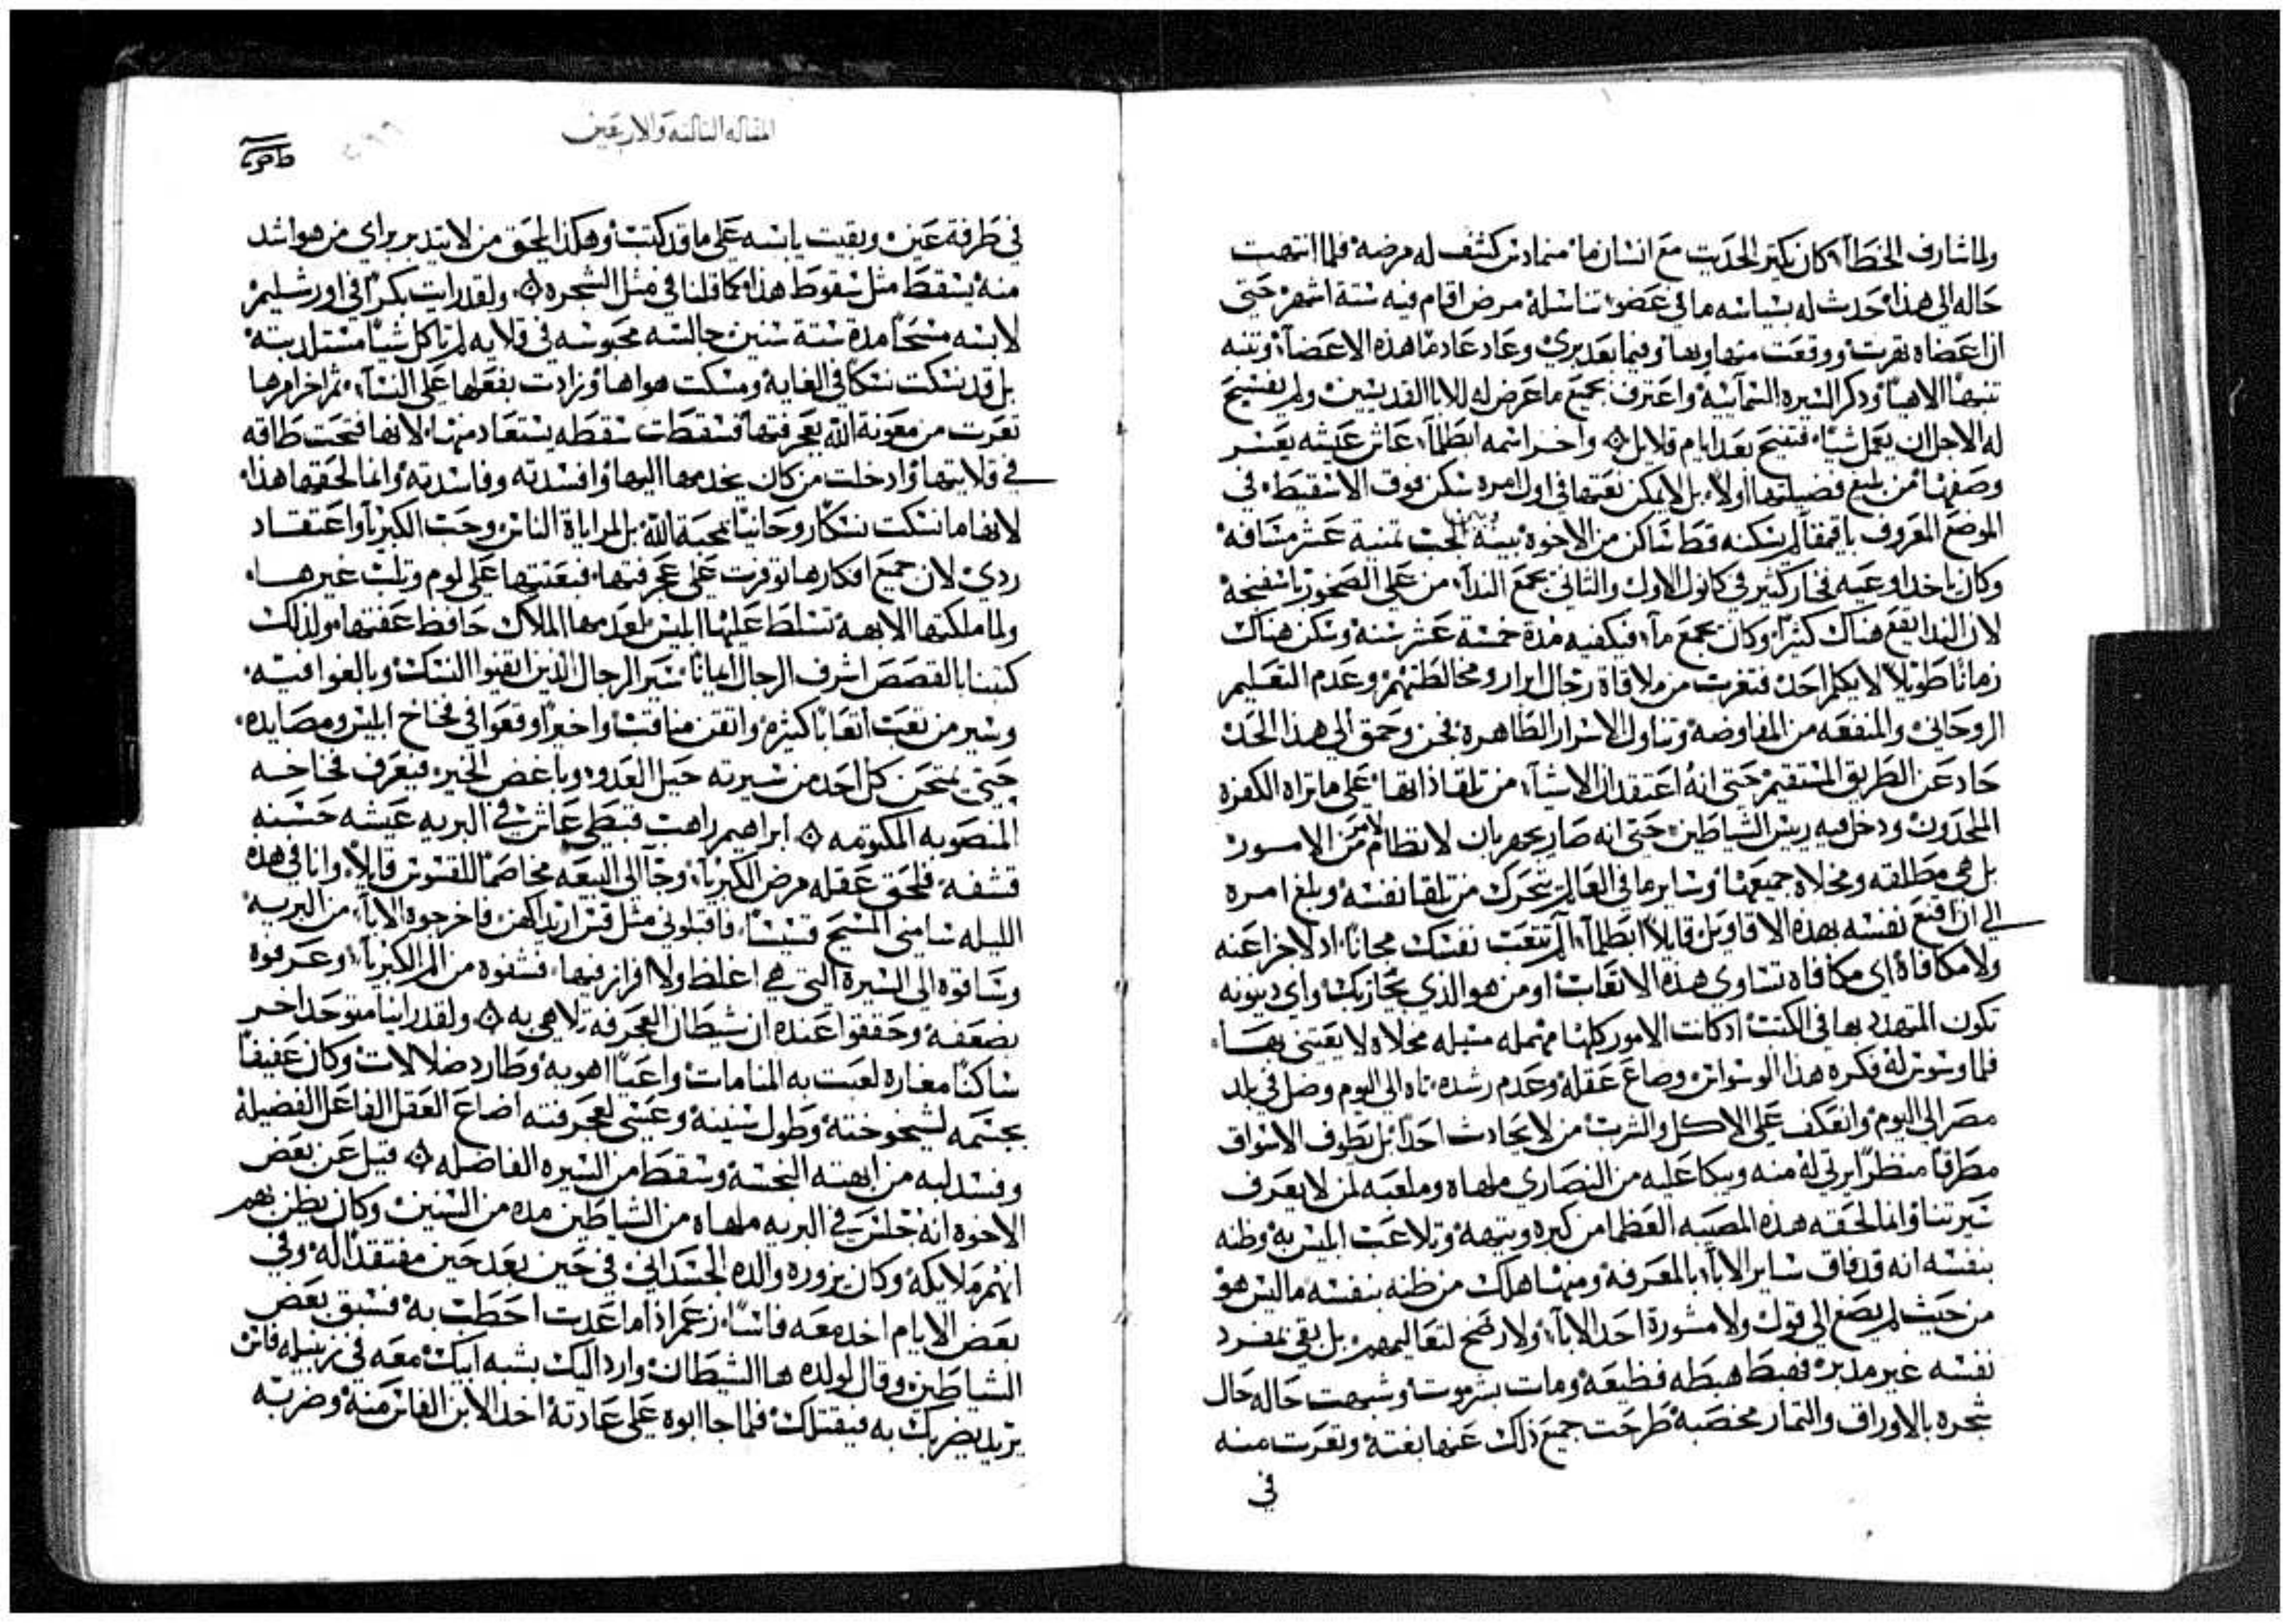 ولما شارف الخطأ كان يكتر الحديت مع انسان ما منمادس كشف له مرضه فلما انتهت
حاله الى هذا حدث له بسياسه ما في عضو تناسله مرض اقام فيه ستة اشهر حتى
ان اعضاه تقرت ووقعت منها وبها وفيما بعد بري وعاد عادما هذه الاعضآ وتنبه
تنبهًا الاهيًا وذكر السيره السمآئيه واعترف بجميع ما عرض له للابا القديسين ولم يفسح
له الاجل ان يعمل شيًا فتنيح بعد ايام قلايل واخر اسمه ابطلمآ عاش عيشه يعسر
وصفها من بلغ فضيلتها اولًا بل لا يمكن نعتها في اول امره سكن فوق الاسقيط في
الموضع المعروف باقمقا لم يسكنه قط ساكن من الاخوه بينه وبين الجب تمنية عشر مسافه
وكان ياخد اوعيه فخار كثير في كانون الاول والثاني يجمع الندآ من على الصخور باسفنجة
لان الندا يقع هناك كثيرًا وكان يجمع مآ فيكفيه مدة خمسة عشر سنه وسكن هناك
زمانًا طويلًا لا يكلم احد فتغرب من ملاقاة رجال ابرار ومخالطتهم وعدم التعليم
الروحاني والمنفعه من المفاوضه وتناول الاسرار الطاهرة فجن وحمق الى هذا الحد
حاد عن الطريق المستقيم حتى انه اعتقد ان الاشيآ من تلقا ذاتها على ما تراه الكفره
الملحدون ودخل فيه ريس الشياطين حتى انه صار يجهر بان لا نظام لامر من الامور
بل هي مطلقه ومخلاه جميعها وساير ما في العالم يتحرك من تلقا نفسه وبلغ امره
الى ان اقنع نفسه بهذه الاقاويل قايلًا ابطلمآ لم تتعب نفسك مجانًا اد لا خزا عنه
ولا مكافاة اي مكافاه تساوي هذه الاتعاب او من هو الذي يجازيك واي دينونه
تكون المتهدد بها في الكتب اد كانت الامور كلها مهمله مسبله مخلاه لا يعتني بها
فلما وسوس له فكره هذا الوسواس وضاع عقله وعدم رشده تاه الى اليوم وضل في بلد
مصر الى اليوم وانعكف على الاكل والشرب من لا يحادث احدًا بل يطوف الاسواق
مطرقًا منظرًا يرتي له منه ويبكا عليه من النصاري ملهاه وملعبه لمن لا يعرف
سيرتنا وانما لحقته هذه المصيبه العظما من كبره وتيهه وتلاعب ابليس به وظنه
بنفسه انه قد فاق ساير الابآ بالمعرفه ومنها هلك من ظنه بنفسه ما ليس هو
من حيث لم يصغ الى قول ولا مشورة احد الابآ ولا رضخ لتعاليمهم بل بقي بمفرد
نفسه غير مدبر فهبط هبطه فظيعة ومات بشر موت وشبهت حاله حال
شجره بالاوراق والتمار مخصبه طرحت جميع ذلك عنها بغتة وتعرت منه
في
المقاله التالته والاربعين
في طرفة عين وبقيت يابسه على ما قد كتبت وهكذا يلحق من لا يتدبر براي من هو اشد
منه يسقط مثل سقوط هذا كما قلنا في مثل الشجره ولقد رايت بكرًا في اورشليم
لابسه مسحًا مدة ستة سنين جالسه محبوسه في قلايه لم تاكل شيًا مستلد بته
بل قد نسكت نسكًا في الغاية ومسكت هواها وزادت بفعلها على النسآ ثم اخر امرها
تعرت من معونة الله بعجرفتها فسقطت سقطه يستعاد منها لانها فتحت طاقه
في قلايتها وادخلت من كان يخدمها اليها وافسدته وفاسدته وانما لحقها هذا
لانها ما نسكت نسكًا روحانيًا بمحبة الله بل لمراياة الناس وحب الكبريا واعتقاد
ردي لان جميع افكارها توفرت على عجرفتها فبعتتها على لوم وتلب غيرها
ولما ملكتها الابهة تسلط عليها ابليس لبعد مها الملاك حافظ عفتها ولذلك
كتبنا بالقصص اشرف الرجال ايمانًا سير الرجال الذين اتقنوا النسك وبالغوا فيه
وسير من تعب اتعابًا كثيره واتقن مناقب واخيرًا وقعوا في فخاخ ابليس ومصايده
حتى يمتحن كل احد من سيرته حيل العدو وباغض الخير فيعرف فخاخه
المنصوبه المكتومه ابراهيم راهب قبطي عاش في البريه عيشه حسنه
قشفه فلحق عقله مرض الكبريآ وجآ الى البيعه مخاصمًا للقسوس قايلًا وانا في هذه
الليله سامني المسيح قسيسًا فاقبلوني مثل قس اريد اكهن فاخرجوه الابآ من البريه
وساقوه الى السيرة التي هي اغلظ ولا افراز فيها فشفوه من الم الكبريآ وعرفوه
بضعفه وحققوا عنده ان شيطان العجرفة تلاهى به ولقد راينا متوحد اخر
ساكنًا مغاره لعبت به المنامات واعيًا اهويه وطارد ضلالات وكان عفيفًا
بجسمه لشيخوخته وطول سنينه وعيشى لعجرفته اضاع العقل الفاعل الفضيله
وفسد لبه من ابهته النجسه وسقط من السيره الفاضله قيل عن بعض
الاخوه انه جلس في البريه ملهاه من الشياطين مده من السنين وكان يظن بهم
انهم ملايكه وكان يزوره والده الجسداني في حين بعد حين مفتقدًا له وفي
بعض الايام اخد معه فاسًا زعم اذا ما اعدت احطب به فسبق بعض
الشياطين وقال لولده ها الشيطان وارد اليك بشبه ابيك معه في زنبيله فاس
يريد يضربك به فيقتلك فلما جا ابوه على عادته اخد الابن الفاس منه وضربه